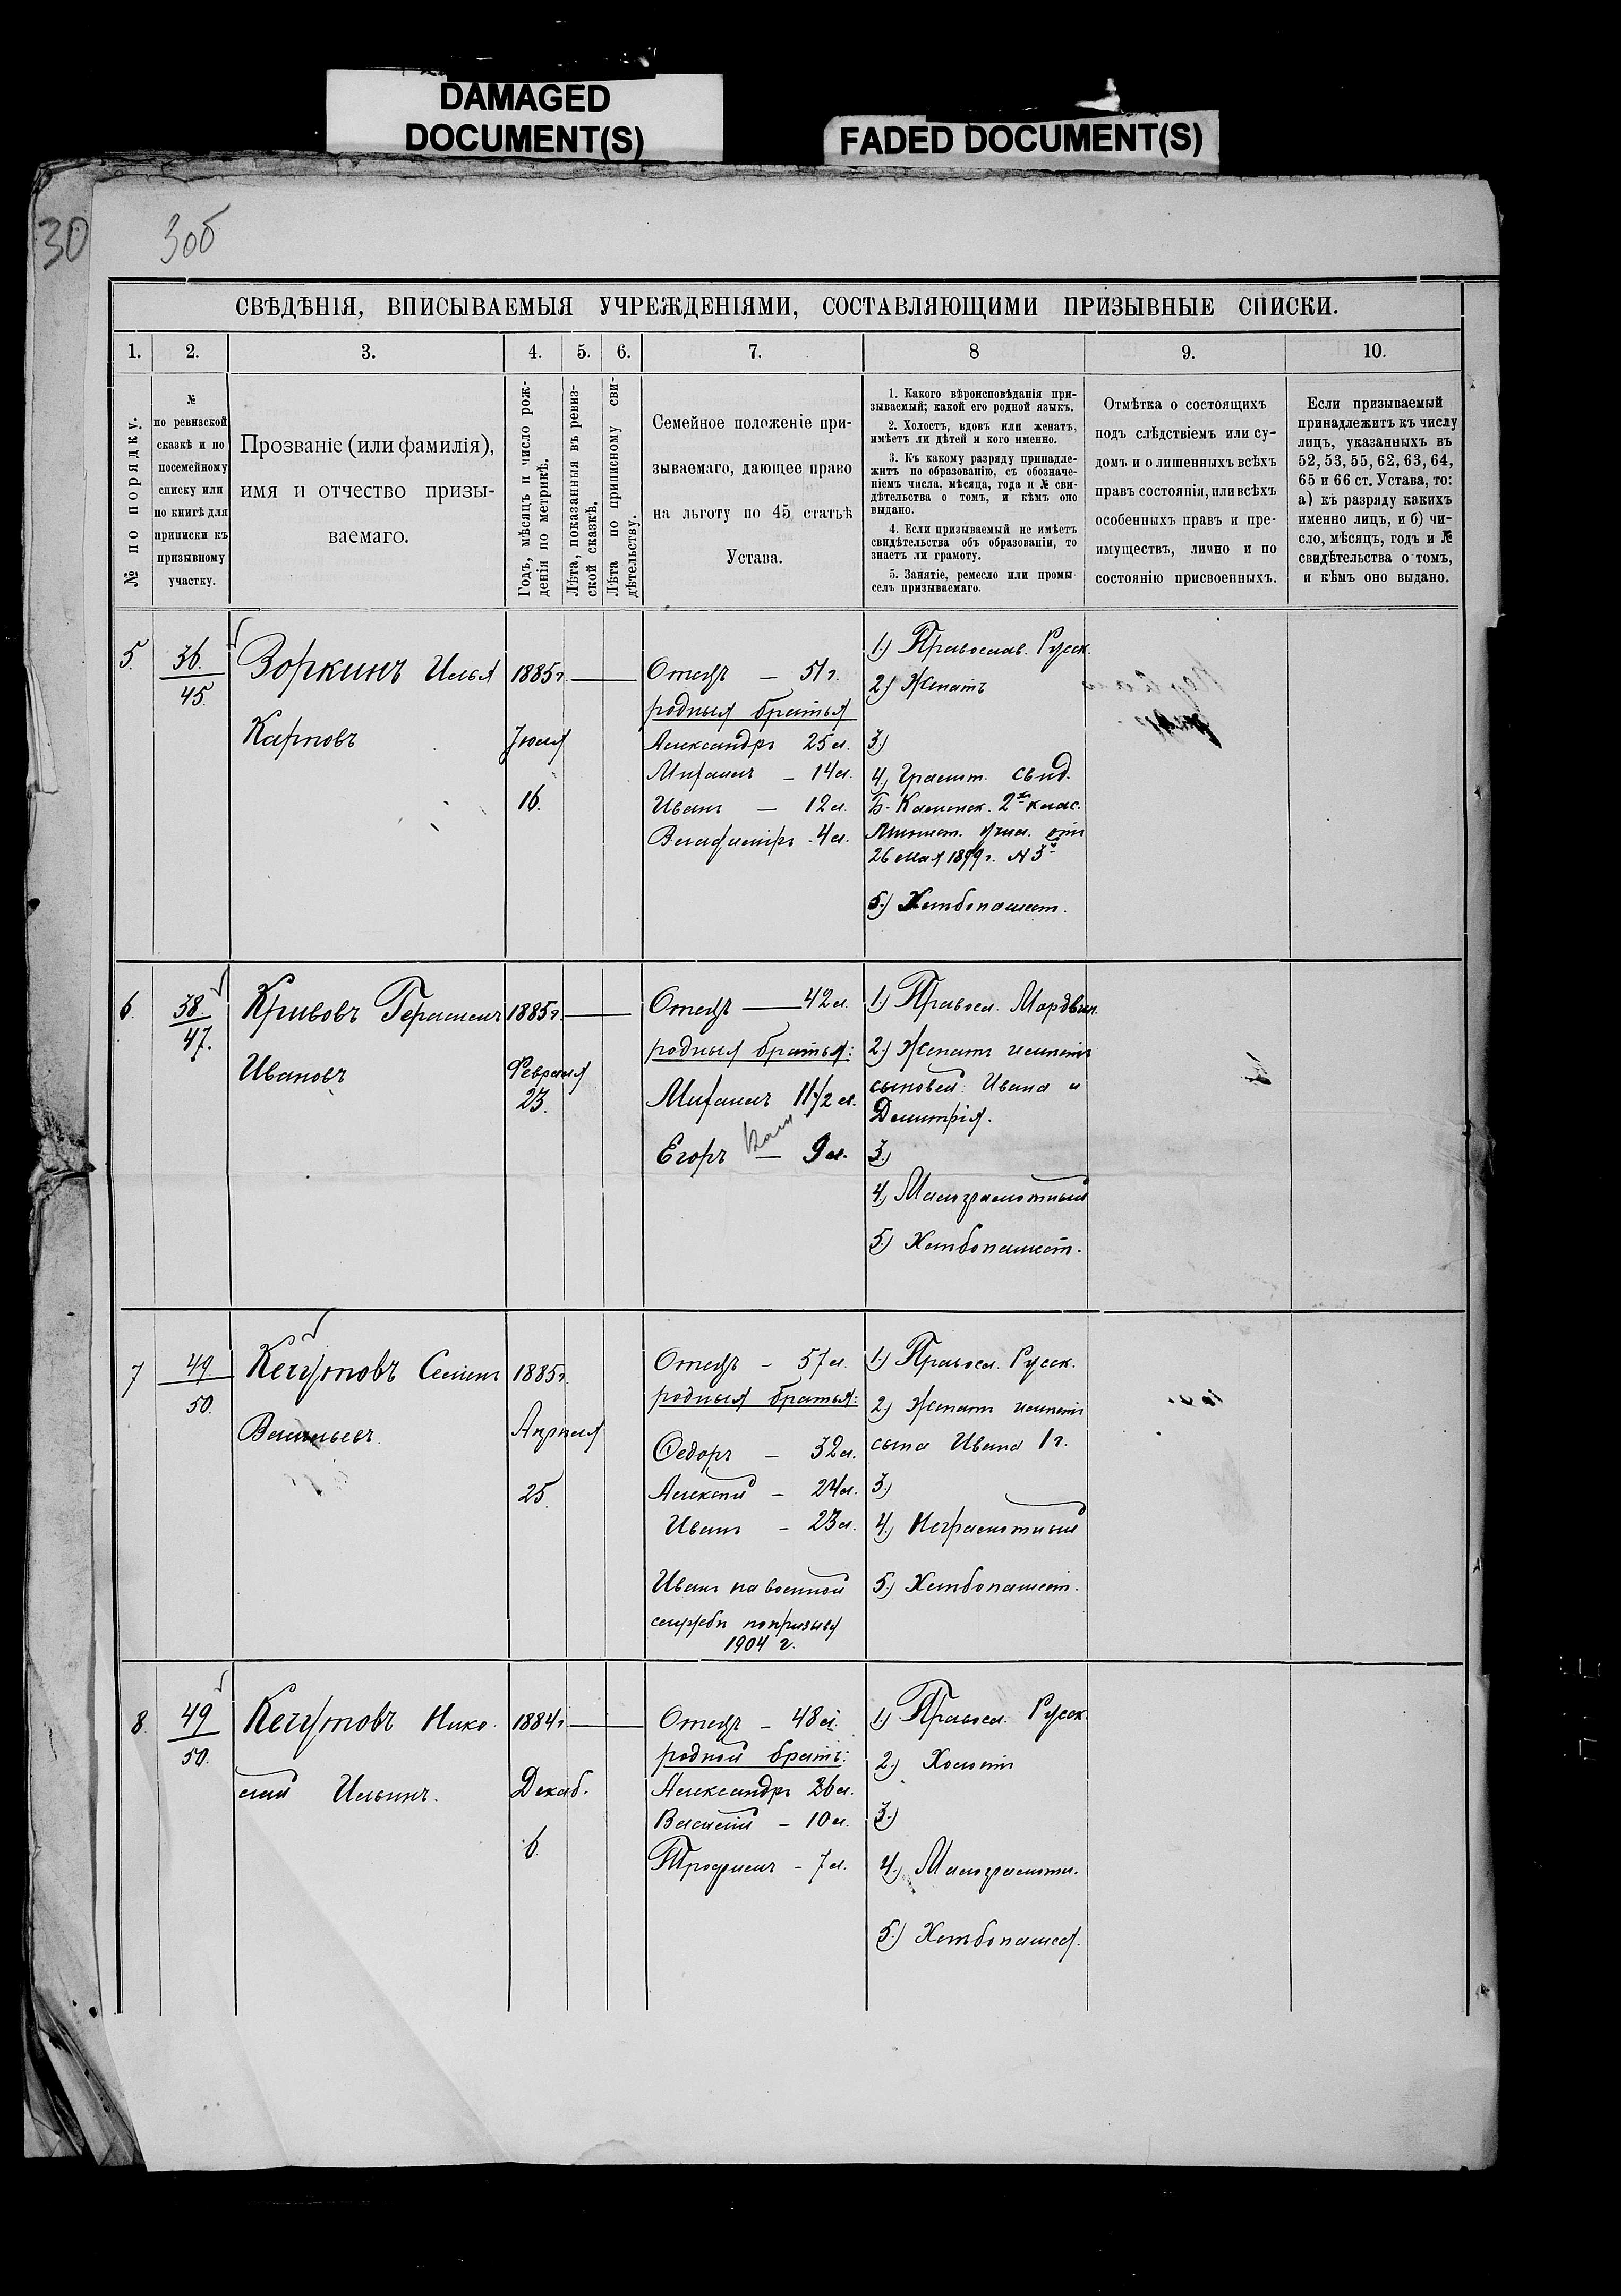 DAMAGED
DOCUMENT(S)
FADED DOCUMENT(S)
30
30б
СВѢДѢНІЯ, ВПИСЫВАЕМЫЯ УЧРЕЖДЕНІЯМИ, СОСТАВЛЯЮЩИМИ ПРИЗЫВНЫЕ СПИСКИ.
1. 2. 3. 4. 5. 6. 7. 8 9. 10.
№ по порядку.
№
по ревизской
сказкѣ и по
посемейному
списку или
по книгѣ для
приписки къ
призывному
участку.
Прозваніе (или фамилія),
имя и отчество призы-
ваемаго.
Годъ, мѣсяцъ и число рож-
денія по метрикѣ.
Лѣта, показанныя въ ревиз-
ской сказкѣ.
Лѣта по приписному сви-
дѣтельству.
Семейное положеніе при-
зываемаго, дающее право
на льготу по 45 статьѣ
Устава.
1. Какого вѣроисповѣданія при-
зываемый; какой его родной языкъ.
2. Холостъ, вдовъ или женатъ,
имѣетъ ли дѣтей и кого именно.
3. Къ какому разряду принадле-
житъ по образованію, съ обозначе-
ніемъ числа, мѣсяца, года и № сви-
дѣтельства о томъ, и кѣмъ оно
выдано.
4. Если призываемый не имѣетъ
свидѣтельства объ образованіи, то
знаетъ ли грамоту.
5. Занятіе, ремесло или промы-
селъ призываемаго.
Отмѣтка о состоящихъ
подъ слѣдствіемъ или су-
домъ и о лишенныхъ всѣхъ
правъ состоянія, или всѣхъ
особенныхъ правъ и пре-
имуществъ, лично и по
состоянію присвоенныхъ.
Если призываемый
принадлежитъ къ числу
лицъ, указанныхъ въ
52, 53, 55, 62, 63, 64,
65 и 66 ст. Устава, то:
а) къ разряду какихъ
именно лицъ, и б) чи-
сло, мѣсяцъ, годъ и №
свидѣтельства о томъ,
и кѣмъ оно выдано.
5.
36.
45.
Зоркинъ Илья
Карповъ
1885г.
Іюля
16.
Отецъ — 51 г.
родныя братья
Александръ 25 л.
Михаилъ — 14 л.
Иванъ — 12 л.
Владиміръ 4 л.
1.) Православ. Русск.
2.) Женатъ
3.)
4.) Грамот. свид.
Б-Каменск. 2х клас.
Минист. Учил. отъ
26 мая 1899 г. N 3й
5.) Хлѣбопашест.
6.
38.
47.
Кривовъ Герасимъ
Ивановъ
1885г.
Февраля
23.
Отецъ — 42 л.
родныя братья:
Михаилъ 11 1/2 л.
Егоръ — 9 л.
1.) Правосл. Мордвин.
2.) Женатъ имѣетъ
сыновей: Ивана и
Димитрія.
3.)
4.) Малограмотный
5.) Хлѣбопашест.
7
49
50.
Кечутовъ Семенъ
Васильевъ.
1885г.
Апрѣля
25.
Отецъ — 57 л.
родныя братья:
Ѳедоръ — 32 л.
Алексѣй — 24 л.
Иванъ — 23 л.
Иванъ на военной
службѣ по призыву
1904 г.
1.) Правосл. Русск.
2.) Женатъ имѣетъ
сына Ивана 1 г.
3.)
4.) Неграмотный
5.) Хлѣбопашест.
8.
49
50.
Кечутовъ Нико-
лай Ильинъ.
1884г.
Декаб.
6.
Отецъ — 48 л.
родной братъ:
Александръ 26 л.
Василій — 10 л.
Трофимъ — 7 л.
1.) Правосл. Русск.
2.) Холостъ
3.)
4.) Малограмотн.
5.) Хлѣбопашес.